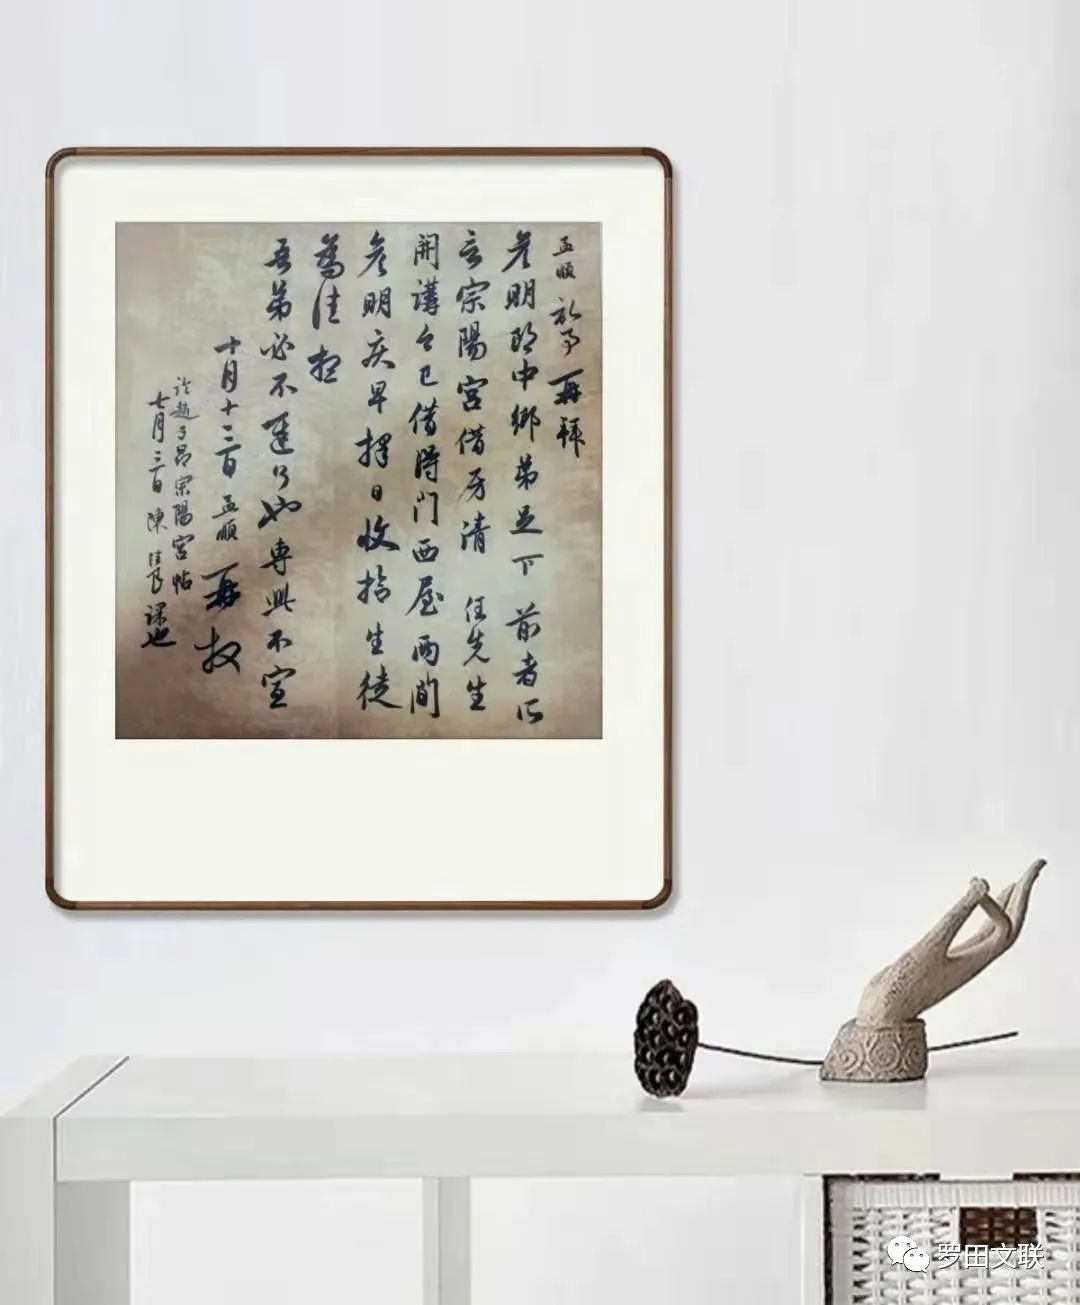 孟順 記事 再拜
彦明郎中鄉弟足下前者所
言宗陽宮借房清 任先生
開講今已借得门西屋两間
彦明疾早擇日收拾生徒
為佳想
吾弟必不遲也専此不宣
十月十三日孟順再拜
臨趙子昂宗陽宮帖
七月三日陳佳良課也
罗田文联